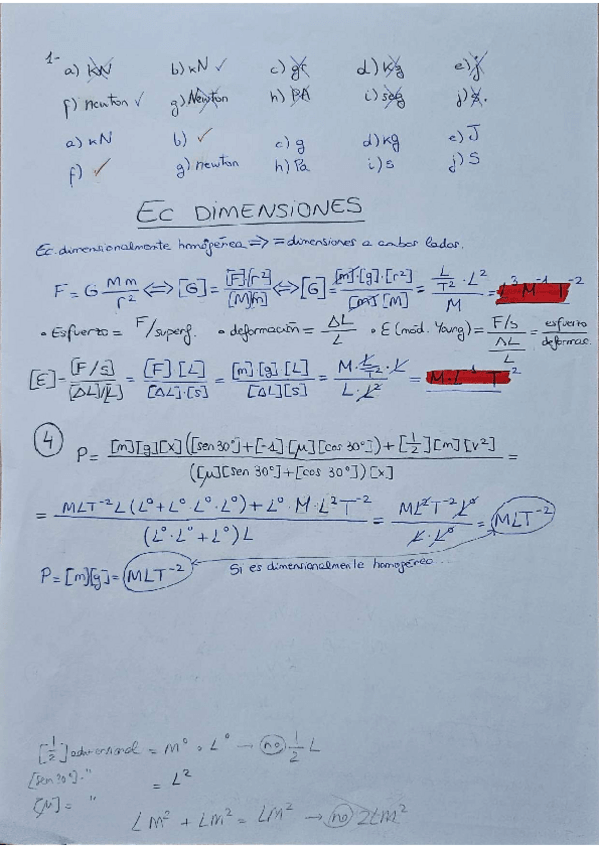 1- a) KN b) KN ✓ c) gr d) Kg e) j
f) newton ✓ g) Newton h) PA i) seg j) s.
a) KN b) ✓ c) g d) Kg e) J
f) ✓ g) newton h) Pa i) s j) S
EC DIMENSIONES
Ec. dimensionalmente homogénea => = dimensiones a ambos lados.
F = G Mm/r² <=> [G] = [F][r²]/[M][m] <=> [G] = [m]·[g]·[r²]/[m][M] = L/T² · L²/M = L³ M⁻¹ T⁻²
• Esfuerzo = F/superf. • deformación = ΔL/L • E (mód. Young) = F/s / ΔL/L = esfuerzo/deformac.
[E] = [F/s]/[ΔL]/[L] = [F][L]/[ΔL]·[s] = [m][g][L]/[ΔL][s] = M·L/T²·L/L·L² = M·L⁻¹ T⁻²
④ P = [m][g][x]([sen 30°]+[-1][μ][cos 30°])+[1/2][m][v²]/([μ][sen 30°]+[cos 30°])[x] =
= MLT⁻²L(L⁰+L⁰·L⁰·L⁰)+L⁰·M·L²T⁻²/(L⁰·L⁰+L⁰)L = ML²T⁻²L⁰/L·L⁰ = MLT⁻²
P = [m][g] = MLT⁻² Si es dimensionalmente homogéneo...
[1/2] = M⁰ · L⁰ → no 1/2 L
[sen 30°] " = L²
[μ] = "
LM² + LM² = LM² → no 2LM²